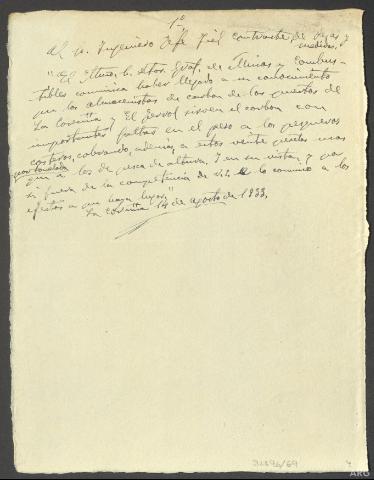 1º
Al Sr. Ingeniero Jefe Fiel Contraste de Pesas y
medidas.
"El Iltmo. S. Dtor. Gral. de Minas y Combus-
tibles comunica haber llegado a su conocimiento
que los almacenistas de carbon de los puertos de
La Coruña y El Ferrol sirven el carbon con
importantes faltas en el peso a los pesqueros
costeros, cobrando, ademas, a estos veinte pesetas mas
por tonelada
que a los de pesca de altura. Y en su vista, y por
si fuera de la competencia de V.S. lo comunico a los
efectos a que haya lugar."
La Coruña 14 de agosto de 1933.
/69
ARG